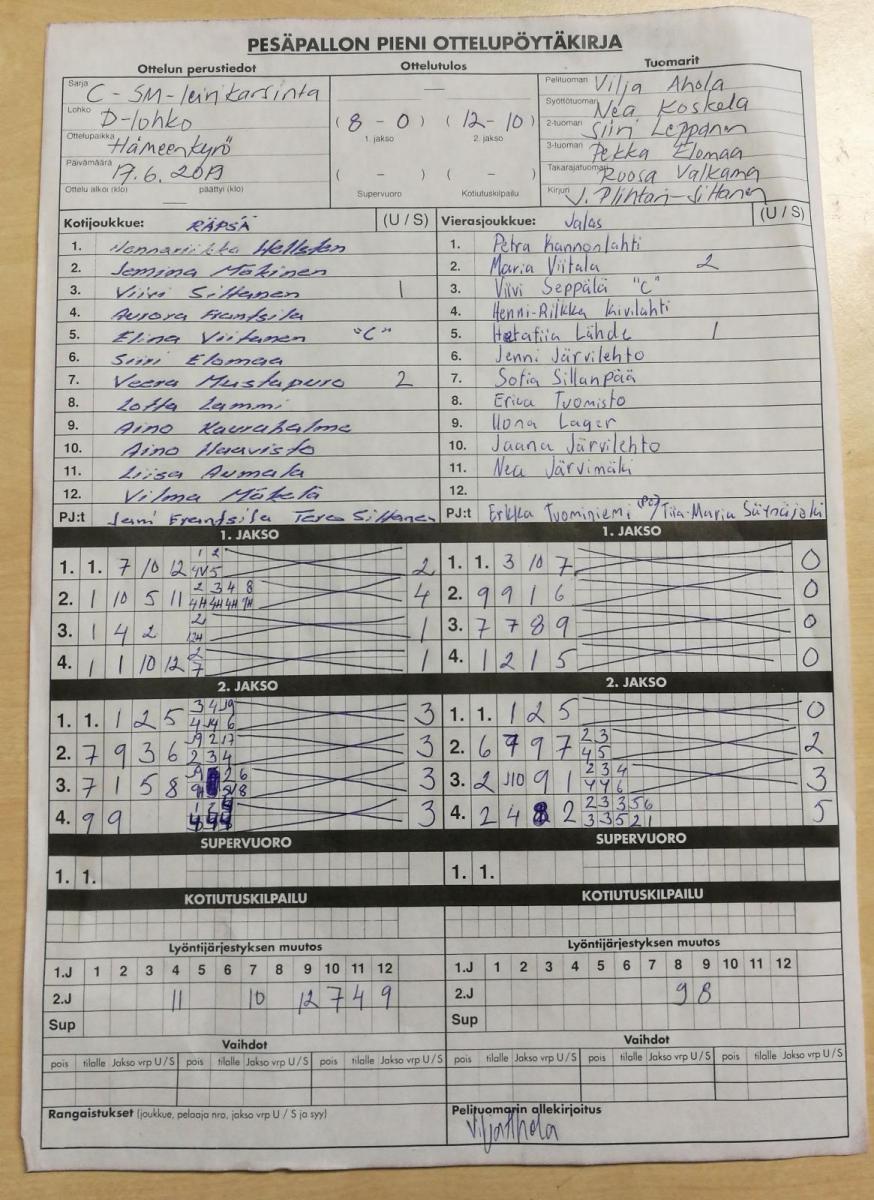 PESÄPALLON PIENI OTTELUPÖYTÄKIRJA
Ottelun perustiedot Ottelutulos Tuomarit
Sarja C-SM-leirikarsinta
Lohko D-lohko
Ottelupaikka Hämeenkyrö
Päivämäärä 17.6.2019
Ottelu alkoi (klo) päättyi (klo)
—
(8 - 0) (12 - 10)
1. jakso 2. jakso
( - ) ( - )
Supervuoro Kotiutuskilpailu
Pelituomari Vilja Ahola
Syöttötuomari Nea Koskela
2-tuomari Siiri Leppänen
3-tuomari Pekka Elomaa
Takarajatuomari Roosa Valkama
Kirjuri
Kotijoukkue: RÄPSÄ (U / S)
1. Hennariikka Hellsten
2. Jemina Mäkinen
3. Viivi Siltanen 1
4. Aurora Frantsila
5. Elina Viitanen "C"
6. Siiri Elomaa
7. Veera Mustapuro 2
8. Lotta Lammi
9. Aino Kaurahalme
10. Aino Haavisto
11. Liisa Aumala
12. Vilma Mäkelä
PJ:t Jani Frantsila Tero Siltanen
Vierasjoukkue: Jalas (U / S)
1. Petra Kannonlahti
2. Maria Viitala 2
3. Viivi Seppälä "C"
4. Henni-Riikka Kivilahti
5. Lähde 1
6. Jenni Järvilehto
7. Sofia Sillanpää
8. Erica Tuomisto
9. Ilona Lager
10. Jaana Järvilehto
11. Nea Järvimäki
12.
PJ:t Erkka Tuominiemi Tiia-Maria
1. JAKSO
1. 1. 7 10 12 2
2. 1 10 5 11 2 3 4 8 4
3. 1 4 2 1
4. 1 1 10 12 2 7 1
1. JAKSO
1. 1. 3 10 7 0
2. 9 9 1 6 0
3. 7 7 8 9 0
4. 1 2 1 5 0
2. JAKSO
1. 1. 1 2 5 3
2. 7 9 3 6 3
3. 7 1 5 8 3
4. 9 9 3
2. JAKSO
1. 1. 1 2 5 0
2. 6 9 9 7 2 3 4 5 2
3. 2 J10 9 1 2 3 4 4 4 6 3
4. 2 4 8 2 2 3 3 5 6 3 3 5 2 1 5
SUPERVUORO
1. 1.
SUPERVUORO
1. 1.
KOTIUTUSKILPAILU
KOTIUTUSKILPAILU
Lyöntijärjestyksen muutos
1.J 1 2 3 4 5 6 7 8 9 10 11 12
2.J 11 10 12 7 4 9
Sup
Lyöntijärjestyksen muutos
1.J 1 2 3 4 5 6 7 8 9 10 11 12
2.J 9 8
Sup
Vaihdot
pois tilalle Jakso vrp U / S pois tilalle Jakso vrp U / S pois tilalle Jakso vrp U / S
Vaihdot
pois tilalle Jakso vrp U / S pois tilalle Jakso vrp U / S pois tilalle Jakso vrp U / S
Rangaistukset (joukkue, pelaaja nro, jakso vrp U / S ja syy)
Pelituomarin allekirjoitus
Vilja Ahola